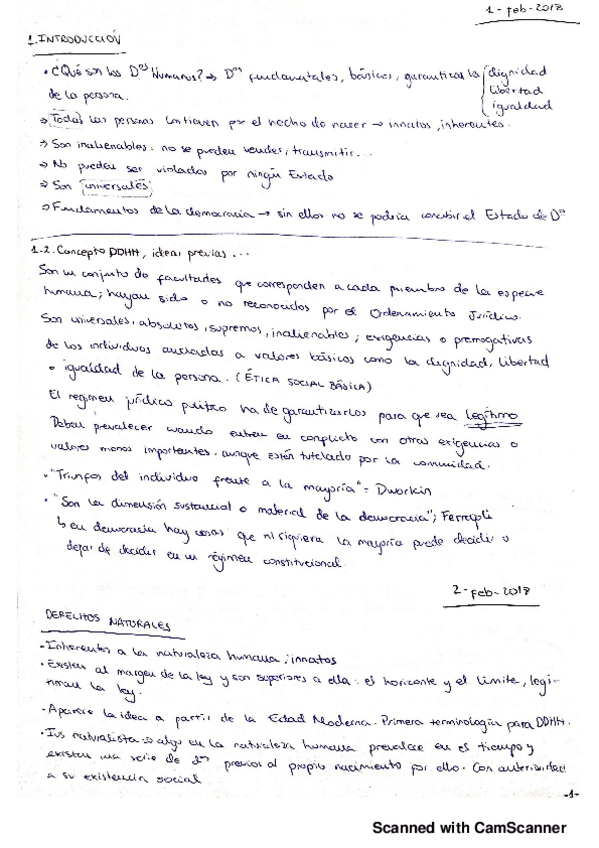 1-feb-2018
1. INTRODUCCIÓN
• ¿Qué son los Dºˢ Humanos? → Dºˢ fundamentales, básicos, garantizan la dignidad
libertad
igualdad
de la persona.
→ Todas las personas contienen por el hecho de nacer → innatos, inherentes.
→ Son inalienables: no se pueden vender, transmitir...
→ No pueden ser violados por ningún Estado
→ Son universales
→ Fundamentos de la democracia → sin ellos no se podría concebir el Estado de Dº
1.2. Concepto DDHH, ideas previas...
Son un conjunto de facultades que corresponden a cada miembro de la especie
humana; hayan sido o no reconocidos por el Ordenamiento Jurídico.
Son universales, absolutos, supremos, inalienables; exigencias o prerrogativas
de los individuos asociadas a valores básicos como la dignidad, libertad
o igualdad de la persona. (ÉTICA SOCIAL BÁSICA)
El regimen jurídico político ha de garantizarlos para que sea legítimo
Deben prevalecer cuando entren en conflicto con otras exigencias o
valores menos importantes. aunque estén tutelado por la comunidad.
• "Triunfos del individuo frente a la mayoría" = Dworkin
• "Son la dimensión sustancial o material de la democracia"; Ferrajoli
↳ en democracia hay cosas que ni siquiera la mayoría puede decidir o
dejar de decidir en un régimen constitucional.
2-feb-2018
DERECHOS NATURALES
• Inherentes a la naturaleza humana; innatos
• Existen al margen de la ley y son superiores a ella: el horizonte y el límite, legi-
timan la ley.
• Aparece la idea a partir de la Edad Moderna. Primera terminología para DDHH.
• Ius naturalista → algo en la naturaleza humana prevalece en el tiempo y
existen una serie de Dºˢ previos al propio nacimiento por ello. Con anterioridad
a su existencia social.
-1-
Scanned with CamScanner